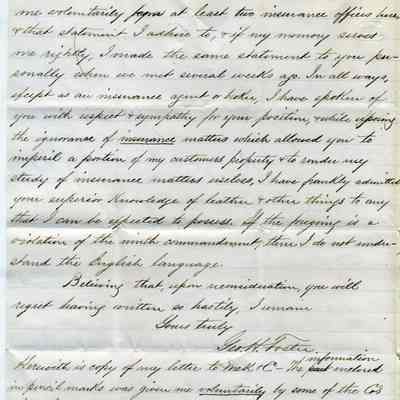 me voluntarily from at least two insurance offices here,
& that statement I adhere to, & if my memory serves
me rightly, I made the same statement to you per-
sonally when we met several weeks ago. In all ways,
except as an insurance agent or broker, I have spoken of
you with respect & sympathy for your position, & while exposing
the ignorance of insurance matters which allowed you to
imperil a portion of my customers property & to render my
study of insurance matters useless, I have frankly admitted
your superior knowledge of leather & other things to any
that I can be expected to possess. If the foregoing is a
violation of the ninth commandment, then I do not under-
stand the English language.
Believing that, upon reconsideration, you will
regret having written so hastily, I remain
Yours truly
Geo. H. Foster.
Herewith is copy of my letter to & Co. The information enclosed
in pencil marks was given me voluntarily by some of the Co's